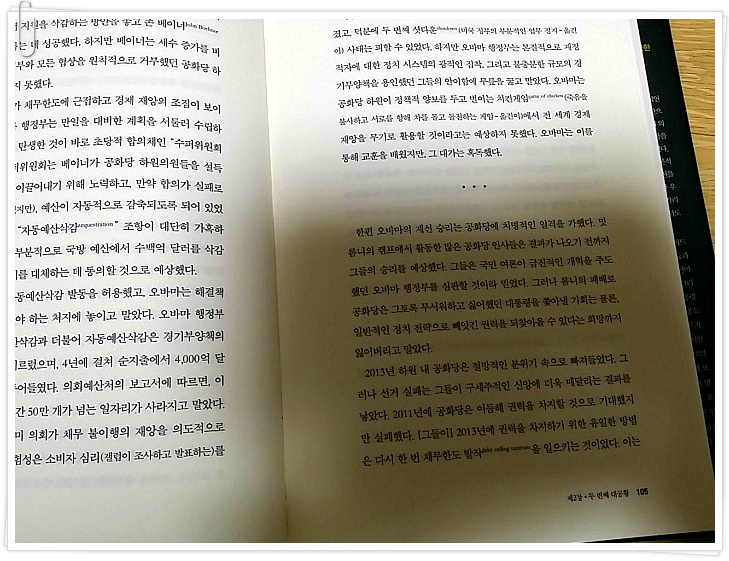 지원을 삭감하는 방안을 놓고 존 베이너John Boehner
는 데 성공했다. 하지만 베이너는 세수 증가를 비
부와 모든 협상을 원칙적으로 거부했던 공화당 하
지 못했다.
가 채무한도에 근접하고 경제 재앙의 조짐이 보이
행정부는 만일을 대비한 계획을 서둘러 수립하
탄생한 것이 바로 초당적 합의체인 “수퍼위원회
퍼위원회는 베이너가 공화당 하원의원들을 설득
이끌어내기 위해 노력하고, 만약 합의가 실패로
지만), 예산이 자동적으로 감축되도록 되어 있었
“자동예산삭감sequestration” 조항이 대단히 가혹하
부분적으로 국방 예산에서 수백억 달러를 삭감
이를 대체하는 데 동의할 것으로 예상했다.
동예산삭감 발동을 허용했고, 오바마는 해결책
야 하는 처지에 놓이고 말았다. 오바마 행정부
산삭감과 더불어 자동예산삭감은 경기부양책의
이르렀으며, 4년에 걸쳐 순지출에서 4,000억 달
줄어들였다. 의회예산처의 보고서에 따르면, 이
간 50만 개가 넘는 일자리가 사라지고 말았다.
미 의회가 채무 불이행의 재앙을 의도적으로
험성은 소비자 심리(갤럽이 조사하고 발표하는)를
겼고, 덕분에 두 번째 셧다운shutdown(미국 정부의 부분적인 업무 정지-옮긴
이) 사태는 피할 수 있었다. 하지만 오바마 행정부는 본질적으로 재정
적자에 대한 정치 시스템의 광적인 집착, 그리고 불충분한 규모의 경
기부양책을 용인했던 그들의 안이함에 무릎을 꿇고 말았다. 오바마는
공화당 하원이 정책적 양보를 두고 벌이는 치킨게임game of chicken(죽음을
불사하고 서로를 향해 차를 몰고 돌진하는 게임-옮긴이)에서 전 세계 경제
재앙을 무기로 활용할 것이라고는 예상하지 못했다. 오바마는 이를
통해 교훈을 배웠지만, 그 대가는 혹독했다.
• • •
한편 오바마의 재선 승리는 공화당에 치명적인 일격을 가했다. 밋
롬니의 캠프에서 활동한 많은 공화당 인사들은 결과가 나오기 전까지
그들의 승리를 예상했다. 그들은 국민 여론이 급진적인 개혁을 주도
했던 오바마 행정부를 심판할 것이라 믿었다. 그러나 롬니의 패배로
공화당은 그토록 무서워하고 싫어했던 대통령을 쫓아낼 기회는 물론,
일반적인 정치 전략으로 빼앗긴 권력을 되찾아올 수 있다는 희망까지
잃어버리고 말았다.
2013년 하원 내 공화당은 절망적인 분위기 속으로 빠져들었다. 그
러나 선거 실패는 그들이 구세주적인 신앙에 더욱 매달리는 결과를
낳았다. 2011년에 공화당은 이듬해 권력을 차지할 것으로 기대했지
만 실패했다. [그들이] 2013년에 권력을 차지하기 위한 유일한 방법
은 다시 한 번 채무한도 발작debt ceiling tantrum을 일으키는 것이었다. 이는
제2장 • 두 번째 대공황 105